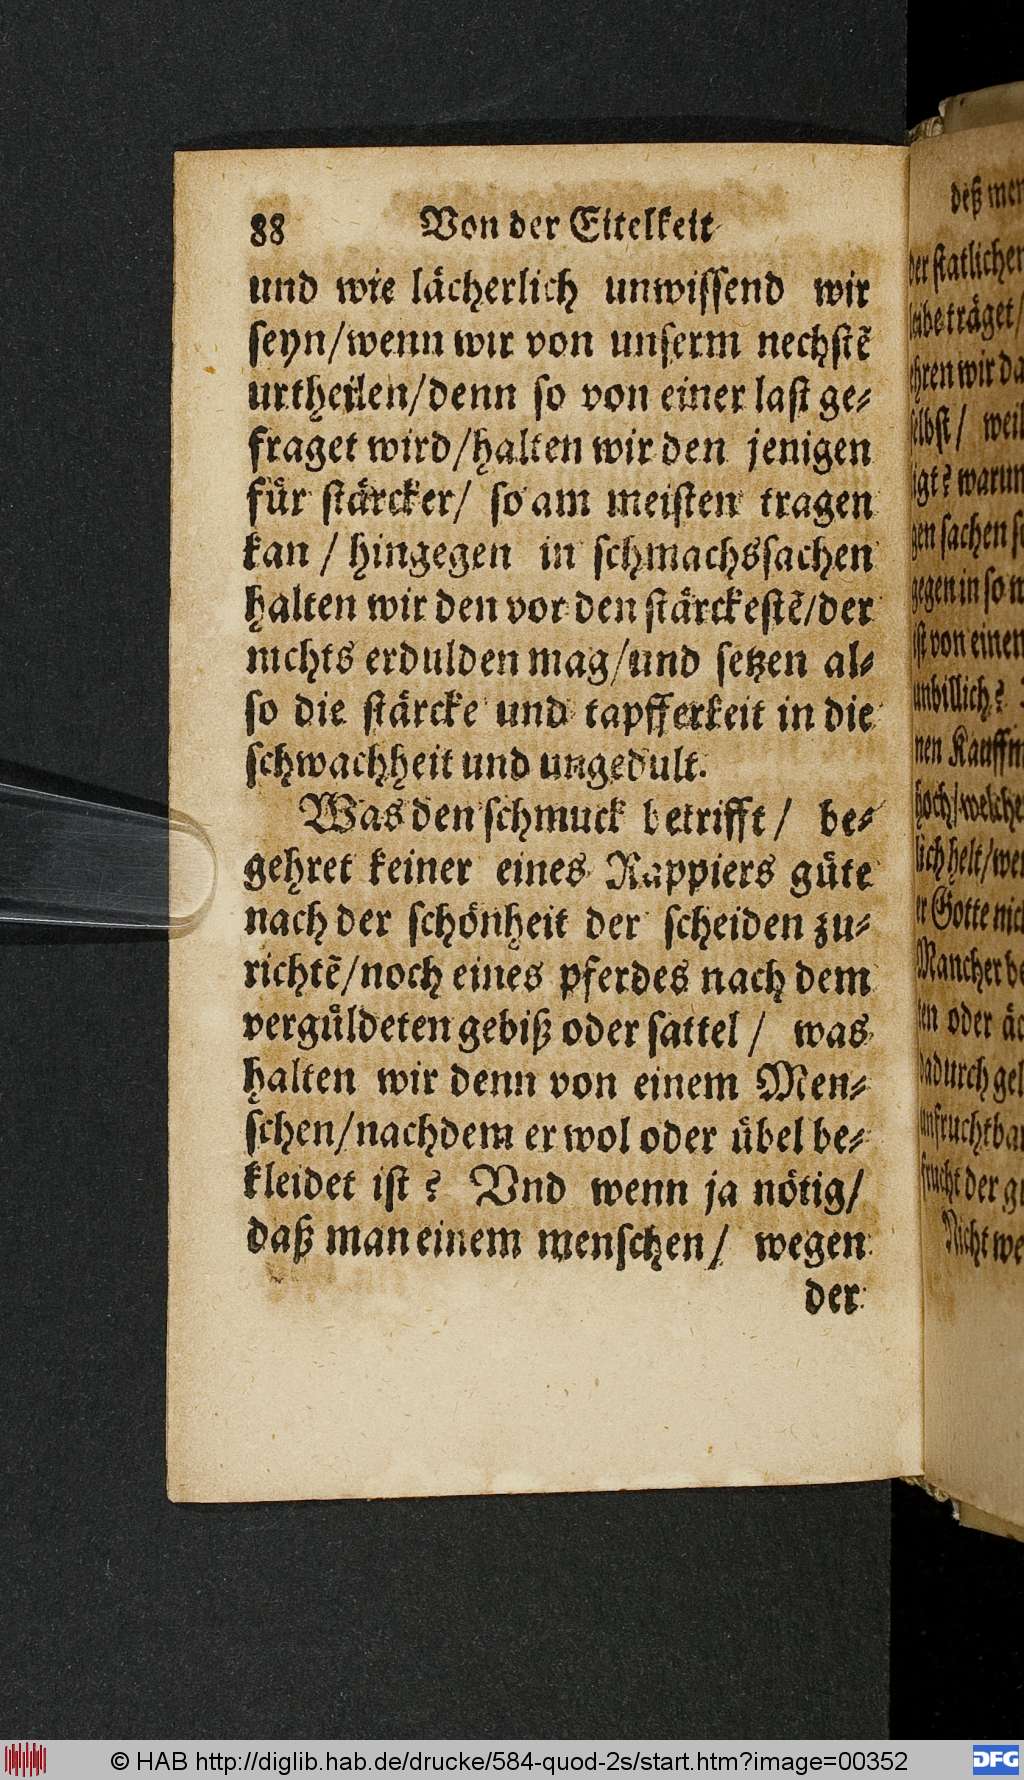 88 Von der Eitelkeit
und wie lächerlich unwissend wir
seyn/wenn wir von unserm nechstẽ
urtheilen/denn so von einer last ge-
fraget wird/halten wir den jenigen
für stärcker/ so am meisten tragen
kan / hingegen in schmachssachen
halten wir den vor den stärckestẽ/der
nichts erdulden mag/und setzen al-
so die stärcke und tapfferkeit in die
schwachheit und ungedult.
Was den schmuck betrifft/ be-
gehret keiner eines Rappiers güte
nach der schönheit der scheiden zu-
richtẽ/noch eines pferdes nach dem
vergüldeten gebiß oder sattel / was
halten wir denn von einem Men-
schen/nachdem er wol oder übel be-
kleidet ist? Vnd wenn ja nötig/
daß man einem menschen/ wegen
der
deß
der statlichen
träget/
wir
selbst/ weil
warum
sachen
gegen in so
ist von einem
unbillich?
hoch/welche
helt/
Gotte
Mancher
oder
dadurch
frucht der
Nicht
© HAB http://diglib.hab.de/drucke/584-quod-2s/start.htm?image=00352
DFG